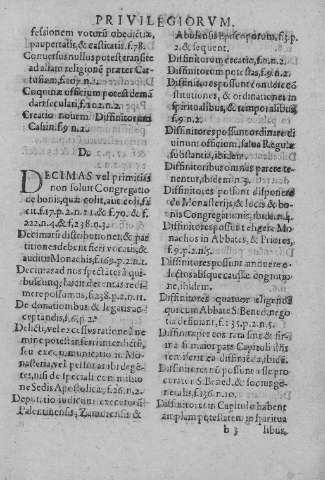 PRIVILEGIORVM.
fessionem votorū obedictiæ,
paupertatis, & castitatis. f.78.
Conuersus nullus potest transire
ad aliam religionē præter Car-
tusiam, f.107. n.2.
Coquinæ officium potest demā
dari seculari, f.102. n.2.
Creatio nouem Diffinitorum
Casin. f.9. n.2.
D.
DECIMAS vel primitias
non soluit Congregatio
de bonis, quæ colit, aut coli fa-
cit, f.17. p.2. n.21. & f.70. & f.
222. n.4. & f.238. n.3.
Decimarū distributiones, & par
titiones debent fieri vocatis, &
auditis Monachis, f.169. p.2. n.1.
Decimas ad nos spectātes à qui-
buscunq; habitis detentas redi-
mere possumus, f.238. p.2. n.11.
De donationibus & legatis ac-
ceptandis, f.6. p.2.
Delicti, vel excessus ratione ne-
mine potest ferri interdictū,
seu excommunicatio in Mo-
nasteria, vel personas ibi degē-
tes, nisi de speciali commissio
ne Sedis Apostolicæ, f.26. n.2.
Deputatio iudicum executorū
Palentinensis, Zamorensis &
Abulensis Episcoporum, f.3. p.
2. & sequent.
Diffinitorum creatio, f.9. n.2.
Diffinitorum potestas, f.9. n.2.
Diffinitores possunt condere cō
stitutiones, & ordinationes in
spiritualibus, & temporalibus
f.9. n.2.
Diffinitores possunt ordinare di
uinum officium, salua Regulæ
substantia, ibidem.
Diffinitoribus omnes parere te-
nentur, ibidem n.3.
Diffinitores possunt disponere
de Monasterijs, & locis & bo-
nis Congregationis, ibid. n.4.
Diffinitores possunt eligere Mo-
nachos in Abbates, & Priores,
f.9. p.2. n.5.
Diffinitores possunt amouere e-
lectos absque causæ cognitio-
ne, ibidem.
Diffinitores quatuor eligendi
quorcum Abbate S. Bened. nego-
tia tractant, f.135. p.2. n.5.
Diffinitores eos rata sint & firma
si maior pars Capituli assen-
serit diffinita, ibidem.
Diffinitores possunt sine pro-
curator S. Bened. & socius ge-
neralis, f.136. n.10.
Diffinitores in Capitulo habent
amplam potestatem in spiritua
b 3 libus,